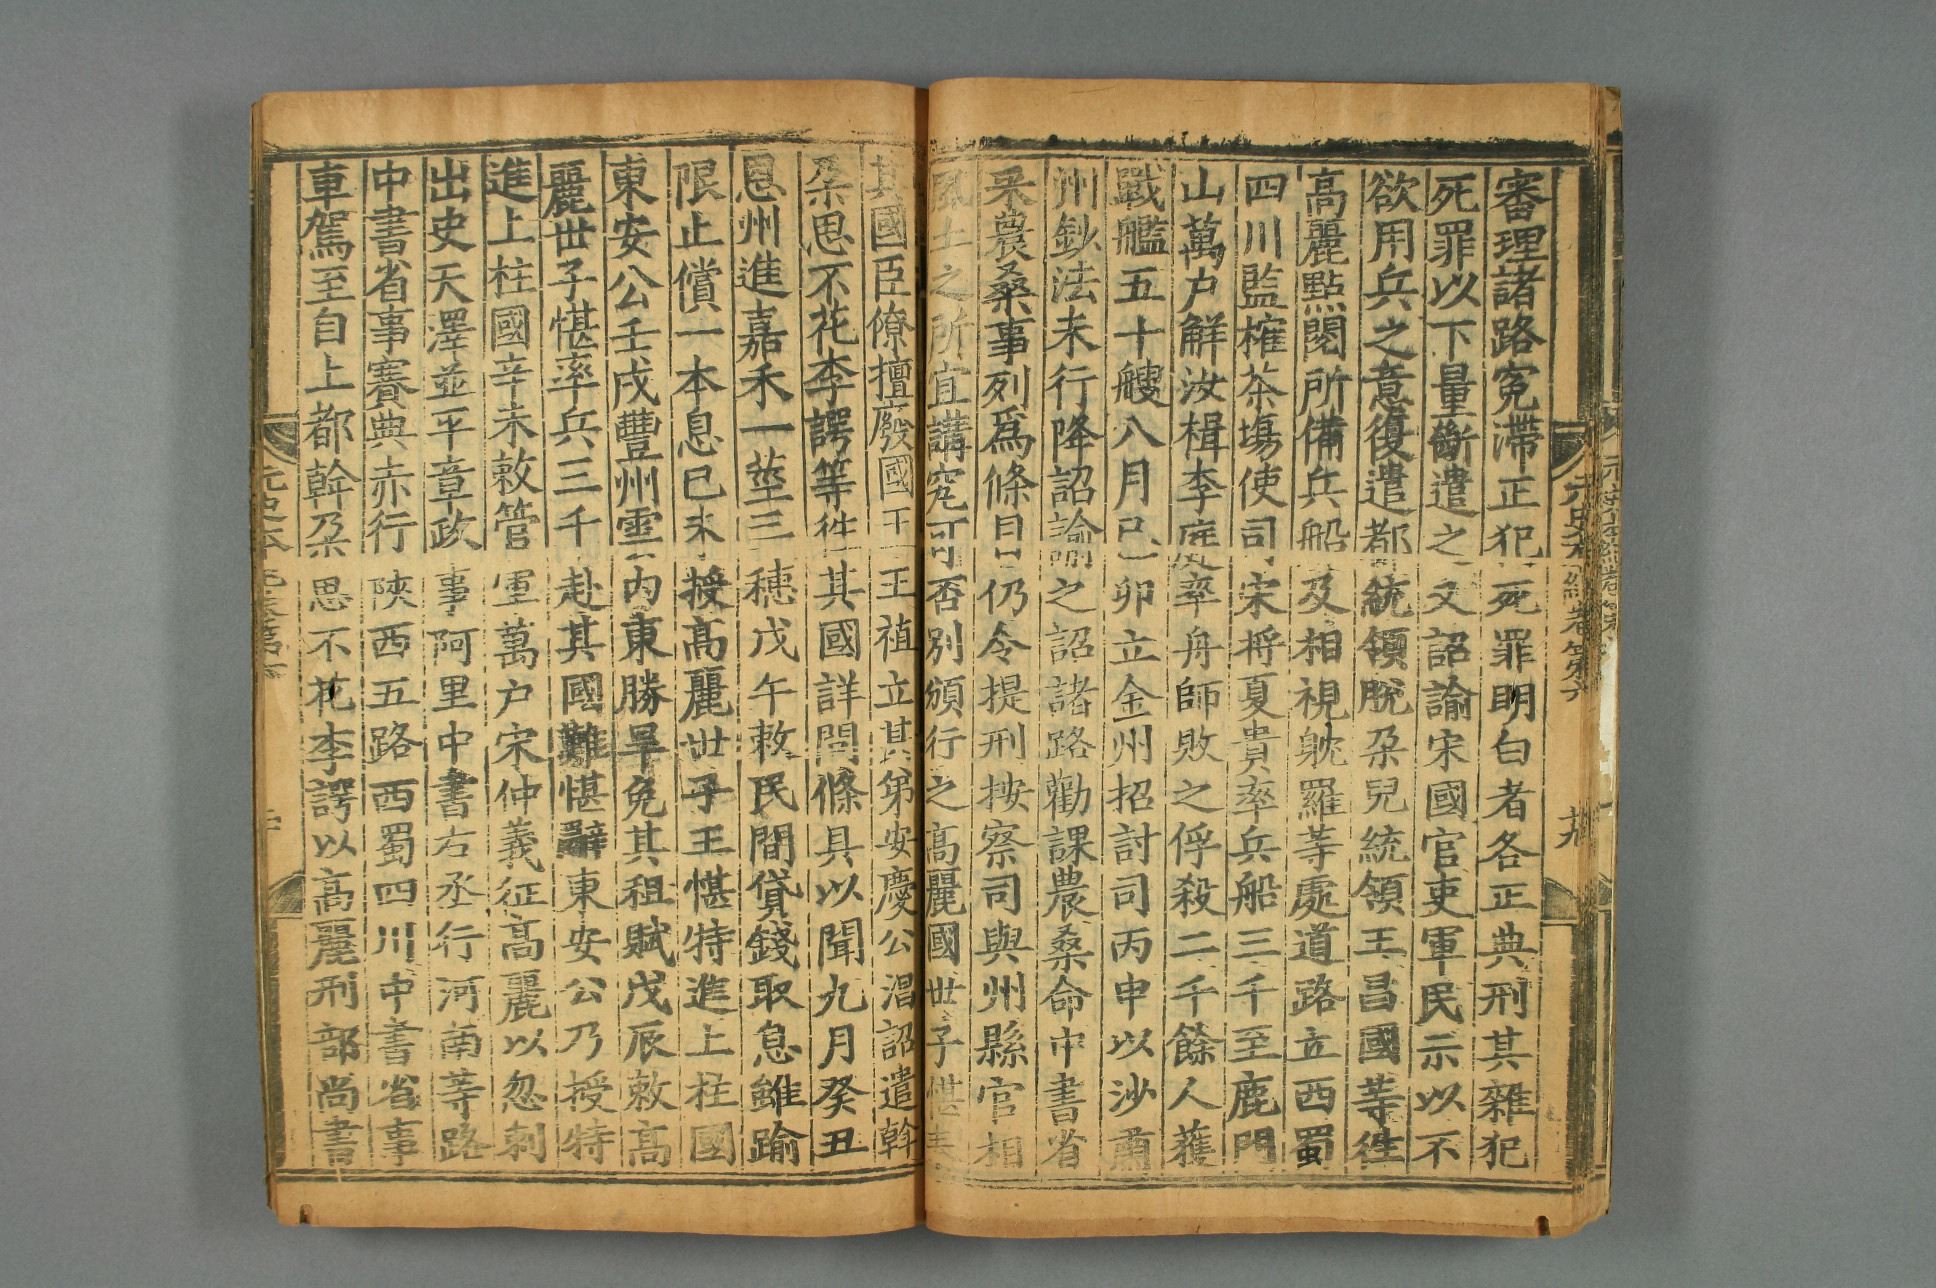 審理諸路冤滯正犯死罪明白者各正典刑其雜犯
死罪以下量斷遣之又詔諭宋國官吏軍民示以不
欲用兵之意復遣都統領脫朶兒統領王昌國等徃
高麗點閱所備兵船及相視躭羅等處道路立西蜀
四川監榷茶塲使司宋將夏貴率兵船三千至鹿門
山萬户解汝楫李庭率舟師敗之俘殺二千餘人獲
戰艦五十艘八月己卯立金州招討司丙申以沙肅
州鈔法未行降詔諭之詔諸路勸課農桑命中書省
采農桑事列爲條目仍令提刑按察司與州縣官相
風土之所宜講究可否別頒行之高麗國世子愖奏
其國臣僚擅廢國王王禃立其弟安慶公淐詔遣斡
朶思不花李諤等徃其國詳問條具以聞九月癸丑
恩州進嘉禾一莖三穗戊午敕民間貸錢取息雖踰
限止償一本息己未授高麗世子王愖特進上柱國
東安公壬戌豐州雲内東勝旱免其租賦戊辰敕高
麗世子愖率兵三千赴其國難愖辭東安公乃授特
進上柱國辛未敕管軍萬户宋仲義征高麗以忽剌
出史天澤並平章政事阿里中書右丞行河南等路
中書省事賽典赤行陝西五路西蜀四川中書省事
車駕至自上都斡朶思不花李諤以高麗刑部尚書